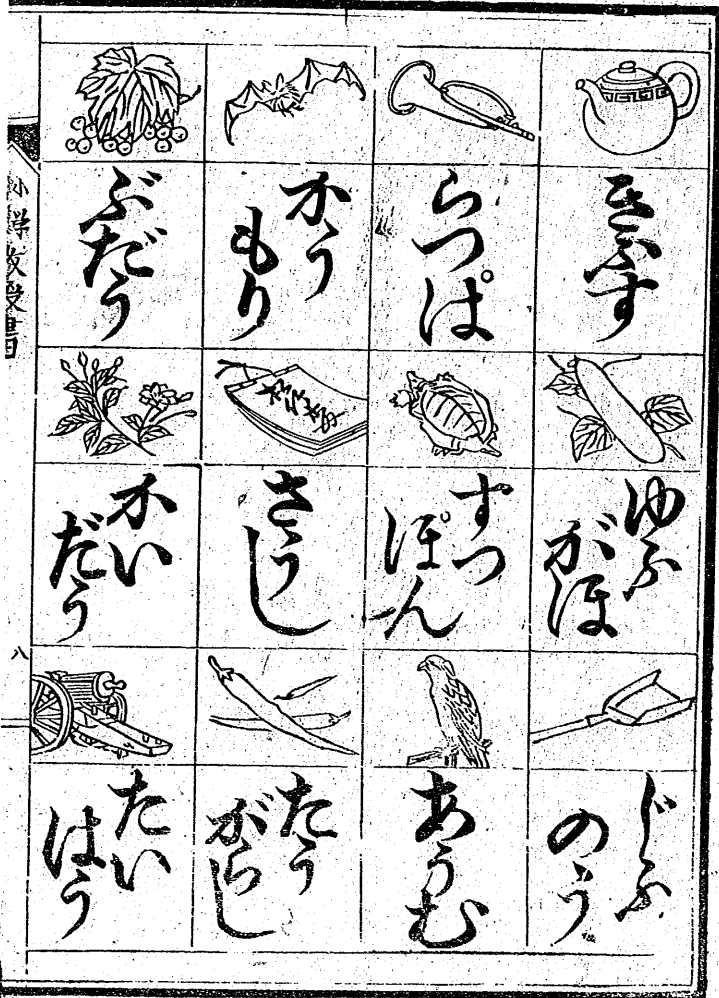 きふす
らつぱ
かう
もり
ぶだう
ゆふ
がほ
すつ
ぽん
さうし
かい
だう
じふ
のう
あうむ
たう
がらし
たい
はう
小学教授書
八